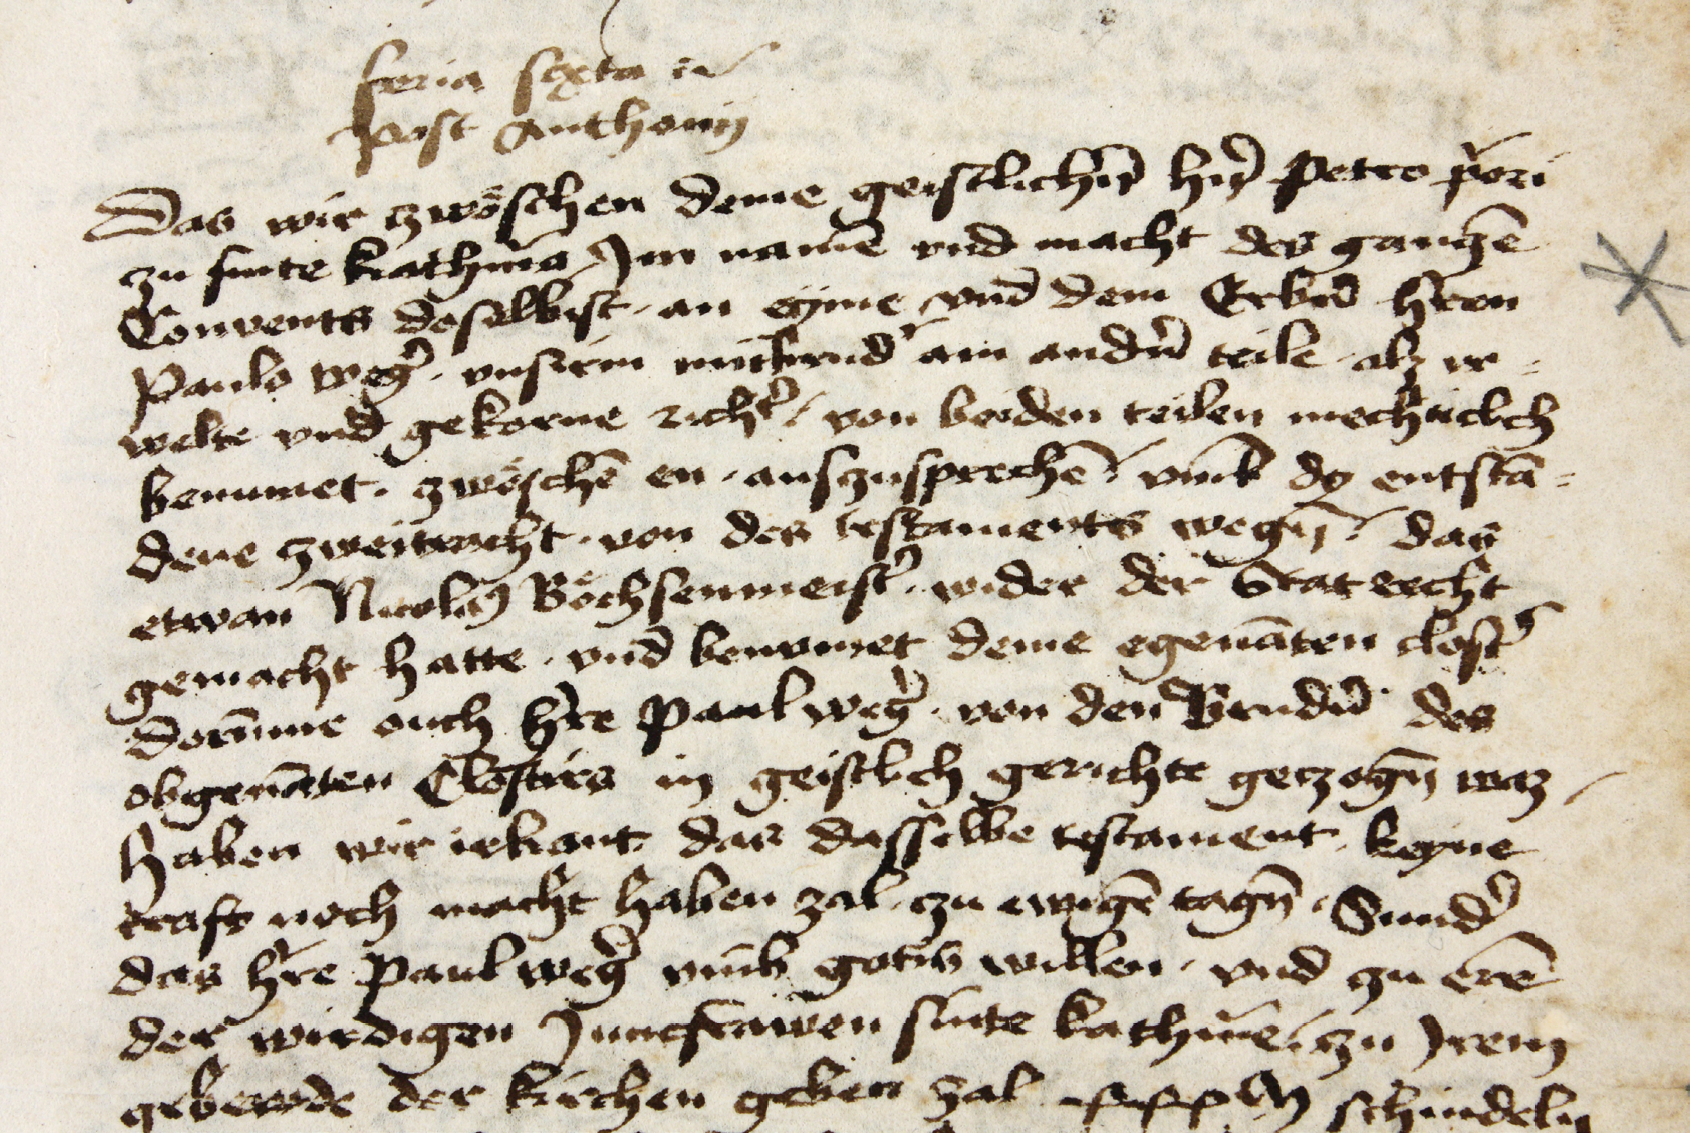 feria sexta
post Anthonij
Das wir czwoschen deme geistlichen hern Petro priori
zu sinte Katherina Im namen vnd macht des ganczen
Convents doselbist an eyme vnd dem Erbern hern
Paulo weger vnsirm mitbruder am andern teile alz ir=
welte vnd gekorne richter von beiden teilen mechticlich
benumet czwoschen en auszusprechen vmb dy entstan=
dene zweitracht von des testaments wegen das
etwan Nicolaus Bochsenmeister wider der Stat recht
gemacht hatte vnd benumet deme egenanten closter
Dorumme ouch here Paul weger von den Brudern des
obgenanten Closters in geistlich gerichte geczogen waz
Haben wir irkant das dasselbe testament keyne
craft noch macht haben zal zu ewigen tagen Sunder
das here Paul weger vmb gotis willen vnd zu eren
der wirdigen Juncfrawen sinte Katherine zu Irem
gebewde der kirchen geben zal schindeln